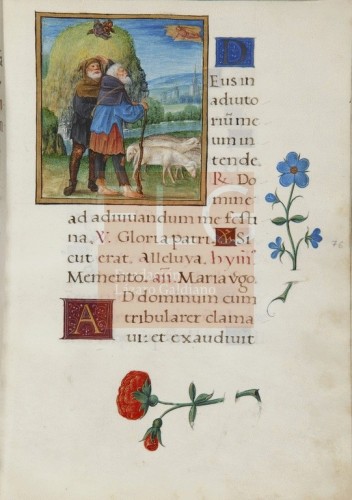 Deus in
adiuto
riũ me
um in
tende.
R. Do
mine
ad adiuuandum me festi
na. V. Gloria patri. Si
cut erat. Alleluya. hyms
Memento. añ. Maria v̓go.
Ad dominum cum
tribularer clama
ui: et exaudiuit
76
Lázaro Galdiano